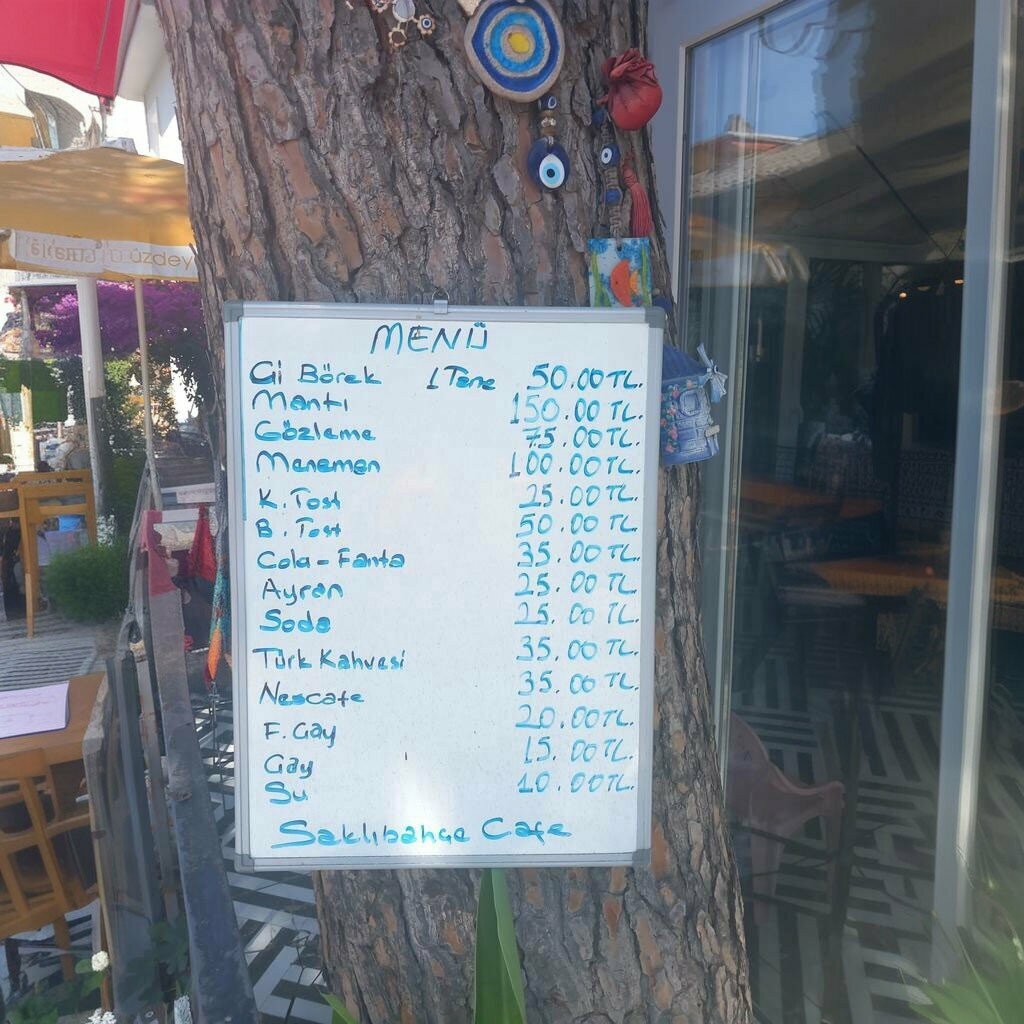 üzdey
MENÜ
Çi Börek 1 Tane 50.00 TL.
Mantı 150.00 TL.
Gözleme 75.00 TL.
Menemen 100.00 TL.
K. Tost 25.00 TL.
B. Tost 50.00 TL.
Cola - Fanta 35.00 TL.
Ayran 25.00 TL.
Soda 25.00 TL.
Türk Kahvesi 35.00 TL.
Nescafe 35.00 TL.
F. Çay 20.00 TL.
Çay 15.00 TL.
Su 10.00 TL.
Saklıbahçe Cafe